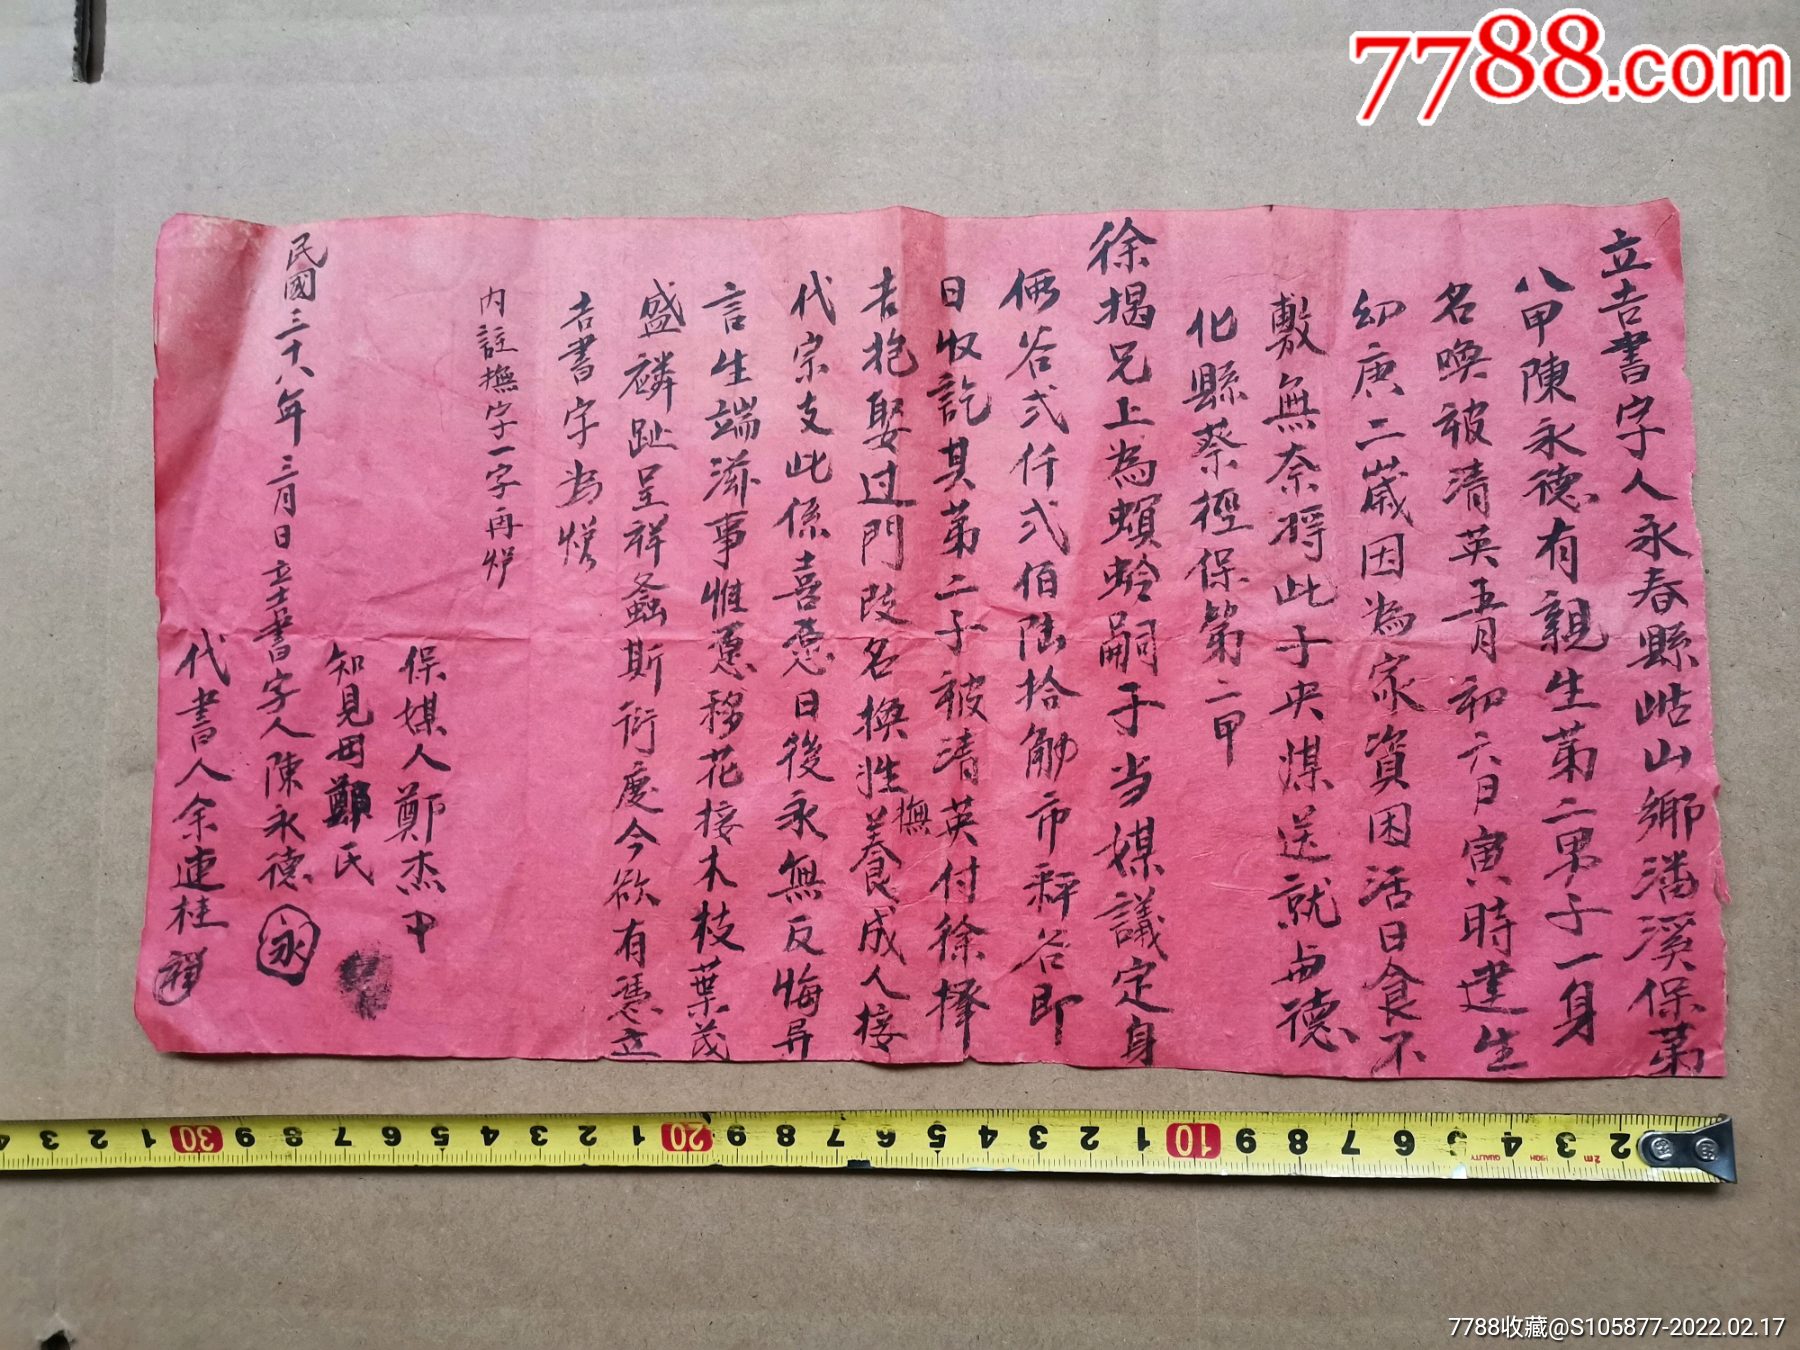 立吉書字人永春縣岵山鄉潘溪保第
八甲陳永德有親生第二男子一身
名喚被清英五月初六日寅時建生
幼庚二歲因為家資困活日食不
敷無奈將此子央媒送就与德
化縣蔡徑保第二甲
徐揭兄上為螟蛉嗣子当媒議定身
價谷弍仟弍伯陆拾觔市秤谷即
日收訖其第二子被清英付徐擇
吉抱娶过門改名換姓養成人接
撫
代宗支此係喜愿日後永無反悔异
言生端滋事惟愿移花接木枝葉茂
盛麟趾呈祥螽斯衍慶今欲有憑立
吉書字為
内註撫字一字再
保媒人鄭杰中
知見母鄭氏
民國三十八年三月日立吉書字人陳永德
永
代書人余連桂
禅
7788.com
7788收藏@S105877-2022.02.17
2 3 4 5 6 7 8 9 10 1 2 3 4 5 6 7 8 9 20 1 2 3 4 5 6 7 8 9 30 1 2 3 4
2m HIGH QUALITY